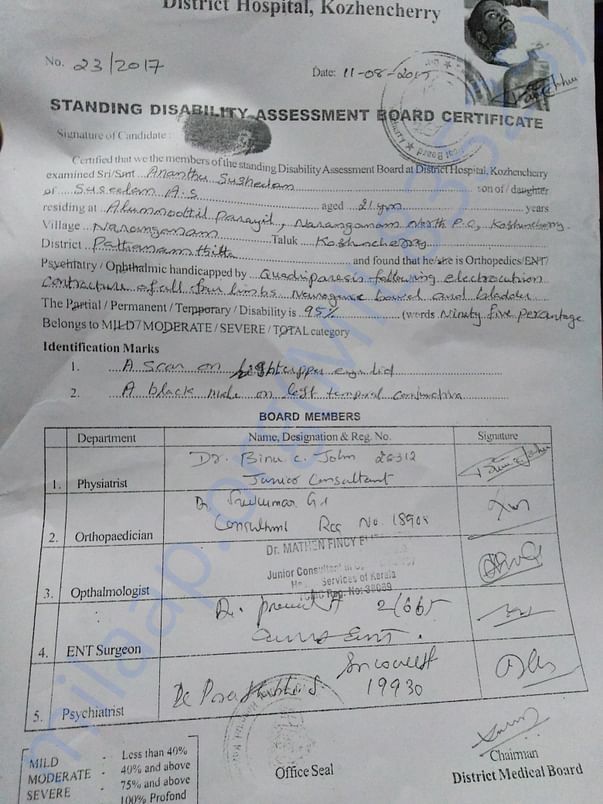 District Hospital, Kozhencherry
No. 23/2017
Date: 11-08-2017
STANDING DISABILITY ASSESSMENT BOARD CERTIFICATE
Signature of Candidate :
Certified that we the members of the standing Disability Assessment Board at District Hospital, Kozhencherry
examined Sri/Smt Ananthu Susheelan son of / daughter
of A.S aged 21 years
residing at Parayil, Naranganam North P.O, Kozhencherry
Village Naranganam Taluk Kozhencherry
District Pathanamthitta and found that he/she is Orthopedics/ENT/
Psychiatry / Ophthalmic handicapped by Quadriparesis following electrocution
contracture of all four limbs Neurogenic bowel and bladder
The Partial / Permanent / Temporary / Disability is 95% (words Ninety five percentage
Belongs to MILD / MODERATE / SEVERE / TOTAL category
Identification Marks
1. A scar on Right upper eye lid
2. A black mole on left temporal
BOARD MEMBERS
Department Name, Designation & Reg. No. Signature
1. Physiatrist Dr. Binu C. John 26312
Junior Consultant
2. Orthopaedician Dr. Sreekumar G
Consultant Reg No. 18904
3. Opthalmologist Dr. MATHEN FINCY
Junior Consultant
Services of Kerala
Reg. No: 38089
4. ENT Surgeon Dr.
ENT
5. Psychiatrist Dr
19930
Office Seal
Chairman
District Medical Board
MILD - Less than 40%
MODERATE - 40% and above
SEVERE - 75% and above
100% Profond
milaap.org